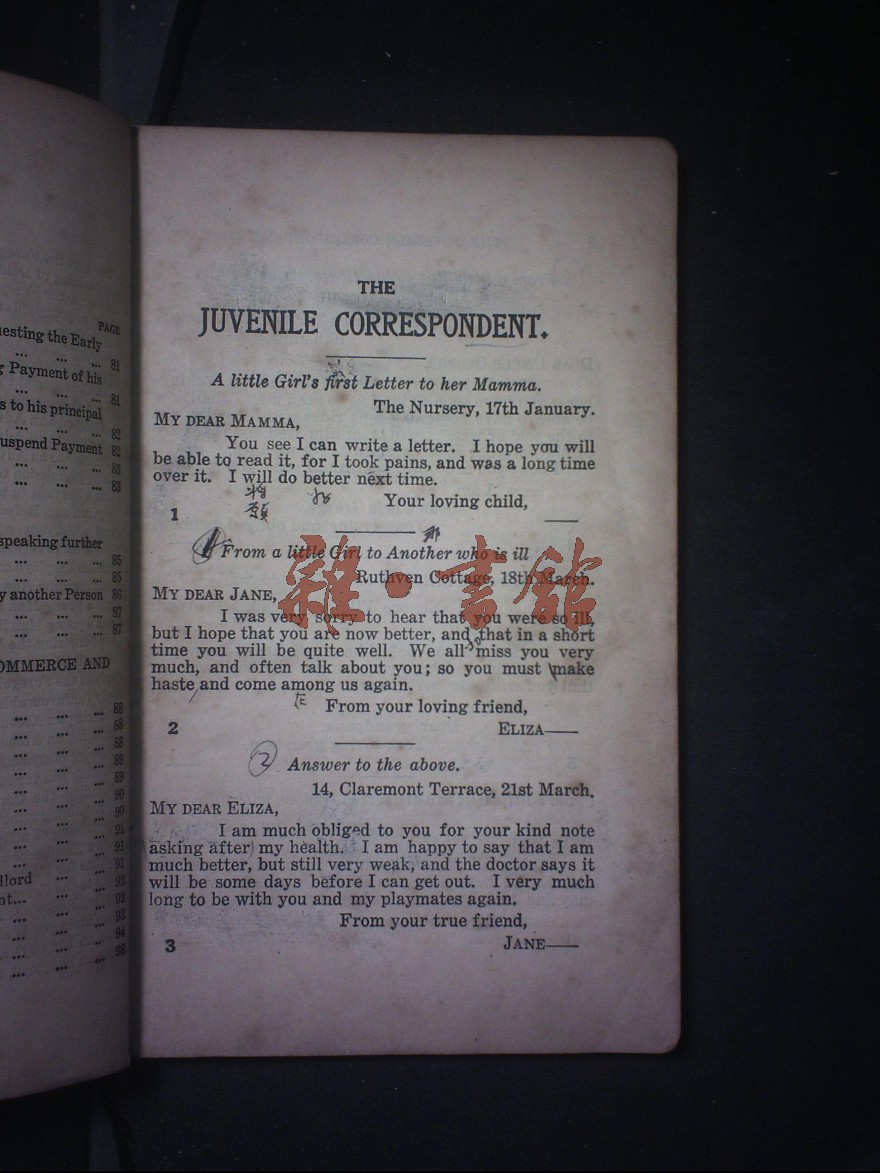 PAGE
esting the Early
... ... ... 81
Payment of his
... ... ... 81
s to his principal
... ... ... 82
uspend Payment 82
... ... ... 83
... ... ... 83
speaking further
... ... ... 85
... ... ... 85
y another Person 86
... ... ... 87
... ... ... 87
OMMERCE AND
... ... ... 88
... ... ... 88
... ... ... 88
... ... ... 89
... ... ... 89
... ... ... 90
... ... ... 90
... ... ... 91
... ... ... 91
... ... ... 91
llord ... ... 92
nt... ... ... 92
... ... ... 93
... ... ... 94
... ... ... 98
THE
JUVENILE CORRESPONDENT.
A little Girl's first Letter to her Mamma.
The Nursery, 17th January.
MY DEAR MAMMA,
You see I can write a letter. I hope you will
be able to read it, for I took pains, and was a long time
over it. I will do better next time.
Your loving child,
1
From a little Girl to Another who is ill
Ruthven Cottage, 18th March.
雜·書館
MY DEAR JANE,
I was very sorry to hear that you were so ill,
but I hope that you are now better, and that in a short
time you will be quite well. We all miss you very
much, and often talk about you; so you must make
haste and come among us again.
From your loving friend,
2 ELIZA——
2
Answer to the above.
14, Claremont Terrace, 21st March.
MY DEAR ELIZA,
I am much obliged to you for your kind note
asking after my health. I am happy to say that I am
much better, but still very weak, and the doctor says it
will be some days before I can get out. I very much
long to be with you and my playmates again.
From your true friend,
3 JANE——